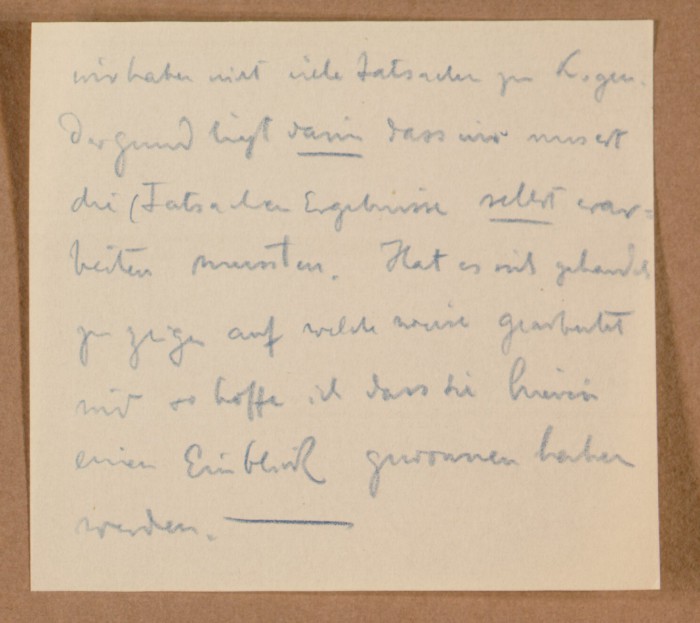 wir haben nicht viele Tatsachen zu
Der Grund liegt darin dass wir
die (Tatsachen Ergebnisse selbst erar-
beiten mussten. Hat es sich gehandelt
zu zeigen auf welche weise gearbeitet
wird so hoffe ich dass Sie hierin
einen Einblick gewonnen haben
werden.